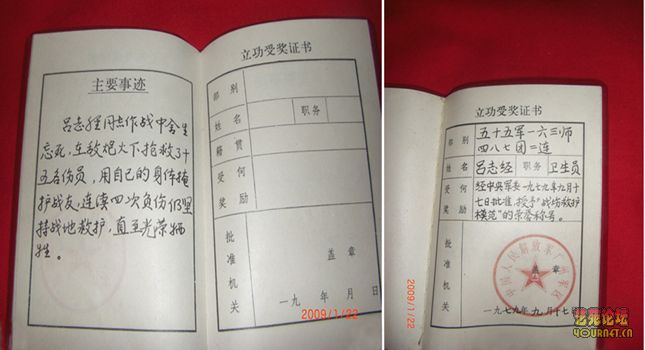 主要事迹
吕志经同志作战中舍生
忘死,在敌炮火下抢救了十
五名伤员,用自己的身体掩
护战友,连续四次负伤仍坚
持战地救护,直至光荣牺
牲。
立功受奖证书
部别
姓名 职务
籍贯
受何奖励
批准机关
盖章
一九 年 月 日
2009/1/22
立功受奖证书
部别 五十五军一六三师
四八七团二连
姓名 吕志经 职务 卫生员
受何奖励 经中央军委一九七九年九月十
七日批准,授予“战场救护
模范”的荣誉称号。
批准机关
中国人民解放军广州军区
盖章
一九七九年九月十七日
2009/1/22
艺苑论坛
YOURNET.CN